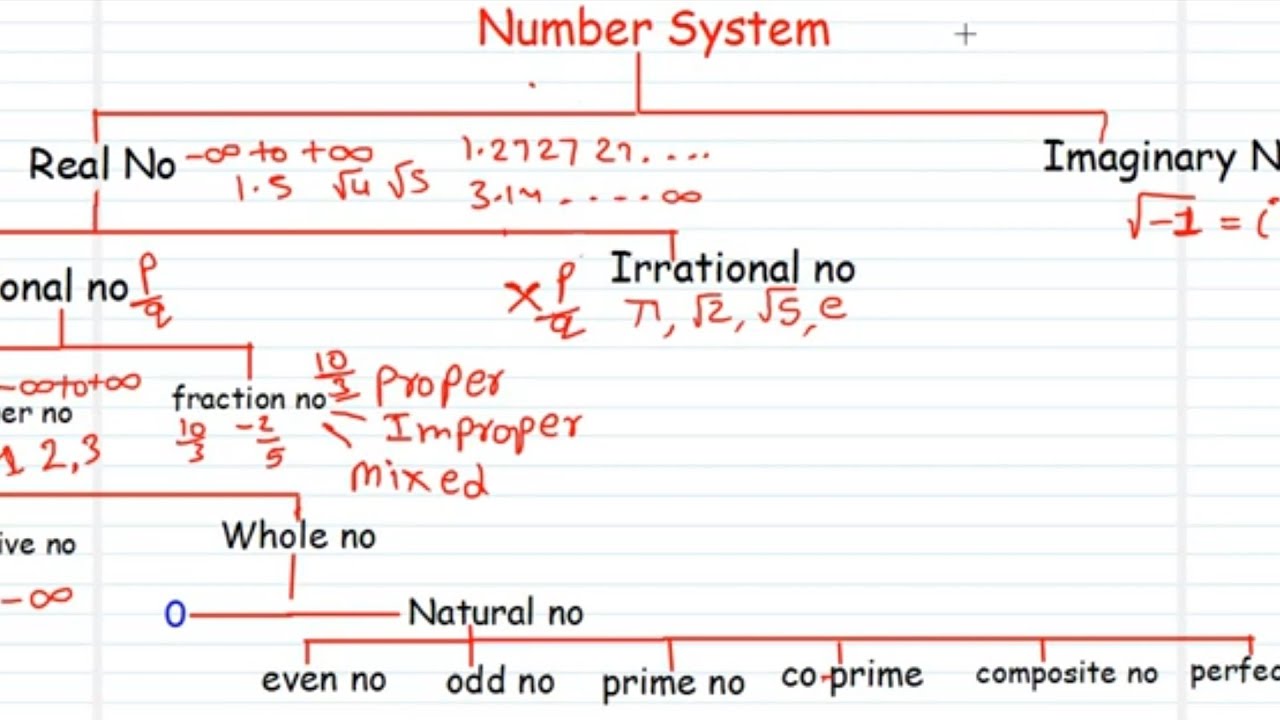 Number System
Real No -∞ to +∞ 1.272727....
Imaginary N
1.5 √4 √5 3.14.....∞
√-1 = i
onal no p/q
x p/q Irrational no
π, √2, √5, e
-∞ to +∞
er no
1 2,3
fraction no 10/3 Proper
10/3 -2/5 Improper
mixed
ive no
Whole no
-∞
0 Natural no
even no odd no prime no co-prime composite no perfec